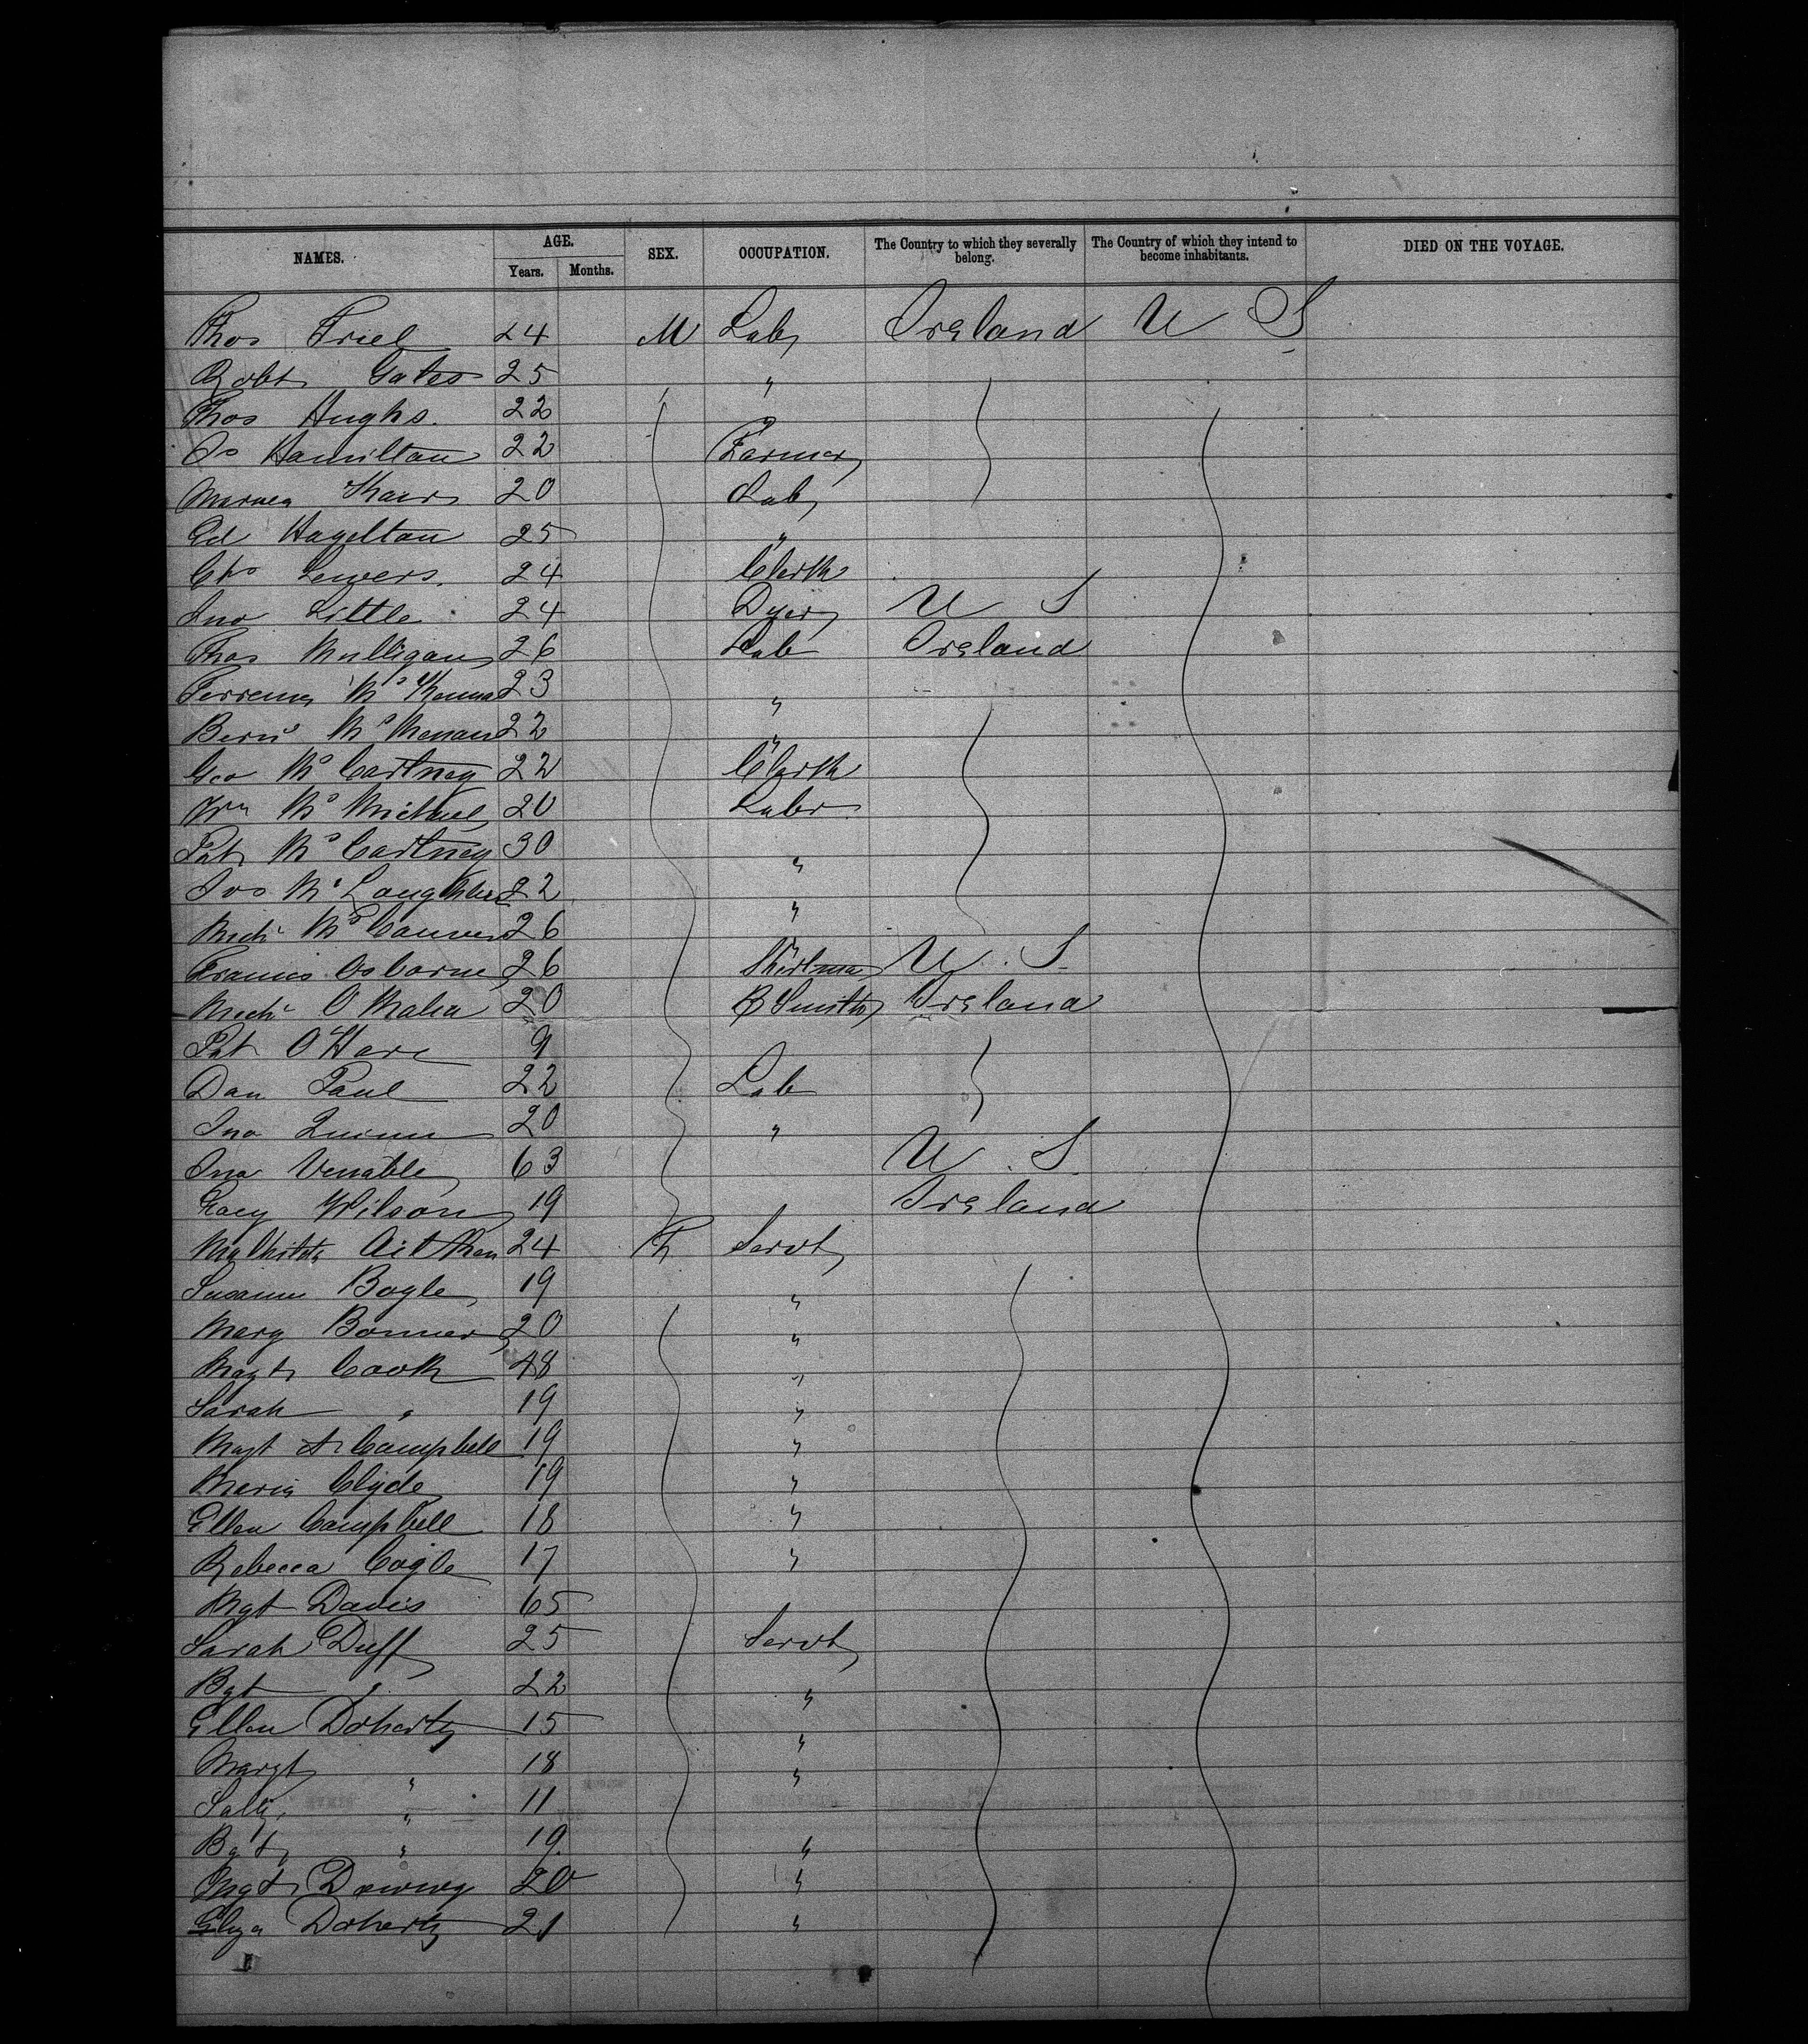 NAMES. AGE. SEX. OCCUPATION. The Country to which they severally belong. The Country of which they intend to become inhabitants. DIED ON THE VOYAGE.
Years. Months.
Thos Friel 24 M Lab Ireland U S
Robt Gates 25 "
Thos Hughs. 22 "
Js Hamilton 22 Farmer
20 Lab
Ed Hagelton 25 "
Chs Lewers. 24 Clerk
Jno Little 24 Dyer U S
Thos Mulligan 26 Lab Ireland
McKenna 23 "
22 "
Geo McCartney 22 Clerk
Wm McMichael 20 Labr
Pat McCartney 30 "
Jos McLaughlin 22 "
Michl 26 "
Francis Osborne 26 U. S.
Michl O Malia 20 B Smith Ireland
Pat O'Hare 9
Dan Paul 22 Lab
Jno Quinn 20 "
Jno Venable 63 U. S.
Wilson 19 Ireland
Aitken 24 F Servt
Susanna Bogle 19 "
Mary Bonner 20 "
Magt Cook 48 "
Sarah " 19 "
Magt A Campbell 19 "
Maria Clyde 19 "
Ellen Campbell 18 "
Rebecca Cogle 17 "
Mgt Davis 65
Sarah Duff 25 Servt
Bgt " 22 "
Ellen Doherty 15 "
Margt " 18 "
Sally " 11
Bgt " 19. "
Mgt Downey 20 "
Eliza Doherty 21 "